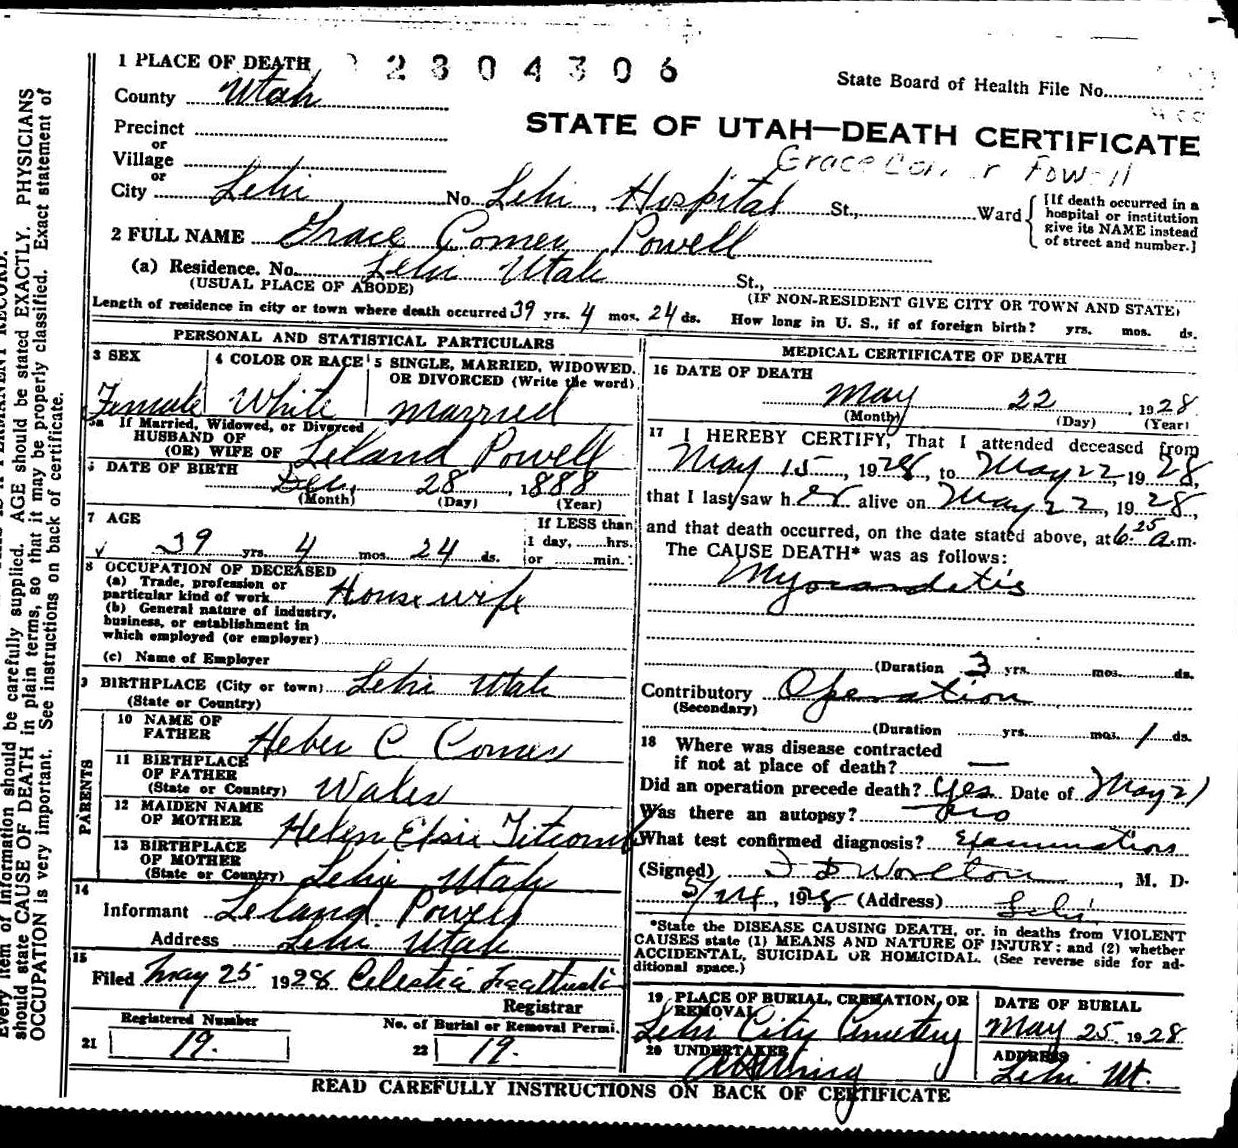 1 PLACE OF DEATH 2304306
State Board of Health File No.
County Utah
STATE OF UTAH—DEATH CERTIFICATE
Precinct
or
Village
or
Grace Powell
City Lehi No. Lehi, Hospital St., Ward
[If death occurred in a
hospital or institution
give its NAME instead
of street and number.]
2 FULL NAME Grace Comer Powell
(a) Residence. No. Lehi Utah St.,
(USUAL PLACE OF ABODE) (IF NON-RESIDENT GIVE CITY OR TOWN AND STATE)
Length of residence in city or town where death occurred 39 yrs. 4 mos. 24 ds. How long in U. S., if of foreign birth? yrs. mos. ds.
PERSONAL AND STATISTICAL PARTICULARS
3 SEX
Female
4 COLOR OR RACE
White
5 SINGLE, MARRIED, WIDOWED,
OR DIVORCED (Write the word)
married
5a If Married, Widowed, or Divorced
HUSBAND OF
(OR) WIFE OF Leland Powell
DATE OF BIRTH
Dec. 28, 1888
(Month) (Day) (Year)
7 AGE
39 yrs. 4 mos. 24 ds.
If LESS than
1 day, hrs.
or min.
8 OCCUPATION OF DECEASED
(a) Trade, profession or
particular kind of work House wife
(b) General nature of industry,
business, or establishment in
which employed (or employer)
(c) Name of Employer
9 BIRTHPLACE (City or town) Lehi Utah
(State or Country)
PARENTS
10 NAME OF
FATHER Heber C Comer
11 BIRTHPLACE
OF FATHER
(State or Country) Wales
12 MAIDEN NAME
OF MOTHER Helen Elsie Titcomb
13 BIRTHPLACE
OF MOTHER
(State or Country) Lehi Utah
14
Informant Leland Powell
Address Lehi Utah
15
Filed May 25 1928 Celestia
Registrar
Registered Number
21 19.
No. of Burial or Removal Permi.
22 19.
MEDICAL CERTIFICATE OF DEATH
16 DATE OF DEATH
May 22, 1928
(Month) (Day) (Year)
17 I HEREBY CERTIFY, That I attended deceased from
May 15, 1928, to May 22, 1928,
that I last saw her alive on May 22, 1928,
and that death occurred, on the date stated above, at 6:25 a.m.
The CAUSE DEATH* was as follows:
(Duration 3 yrs. mos. ds.
Contributory Operation
(Secondary)
(Duration yrs. mos. 1 ds.
18 Where was disease contracted
if not at place of death? —
Did an operation precede death? yes Date of May 21
Was there an autopsy? no
What test confirmed diagnosis? Examination
(Signed) M. D.
5/24, 1928 (Address) Lehi
*State the DISEASE CAUSING DEATH, or, in deaths from VIOLENT
CAUSES state (1) MEANS AND NATURE OF INJURY; and (2) whether
ACCIDENTAL, SUICIDAL OR HOMICIDAL. (See reverse side for ad-
ditional space.)
19 PLACE OF BURIAL, CREMATION, OR
REMOVAL
Lehi City Cemetery
DATE OF BURIAL
May 25 1928
20 UNDERTAKER
ADDRESS
Lehi Ut.
READ CAREFULLY INSTRUCTIONS ON BACK OF CERTIFICATE
Every item of information should be carefully supplied. AGE should be stated EXACTLY. PHYSICIANS
should state CAUSE OF DEATH in plain terms, so that it may be properly classified. Exact statement of
OCCUPATION is very important. See instructions on back of certificate.